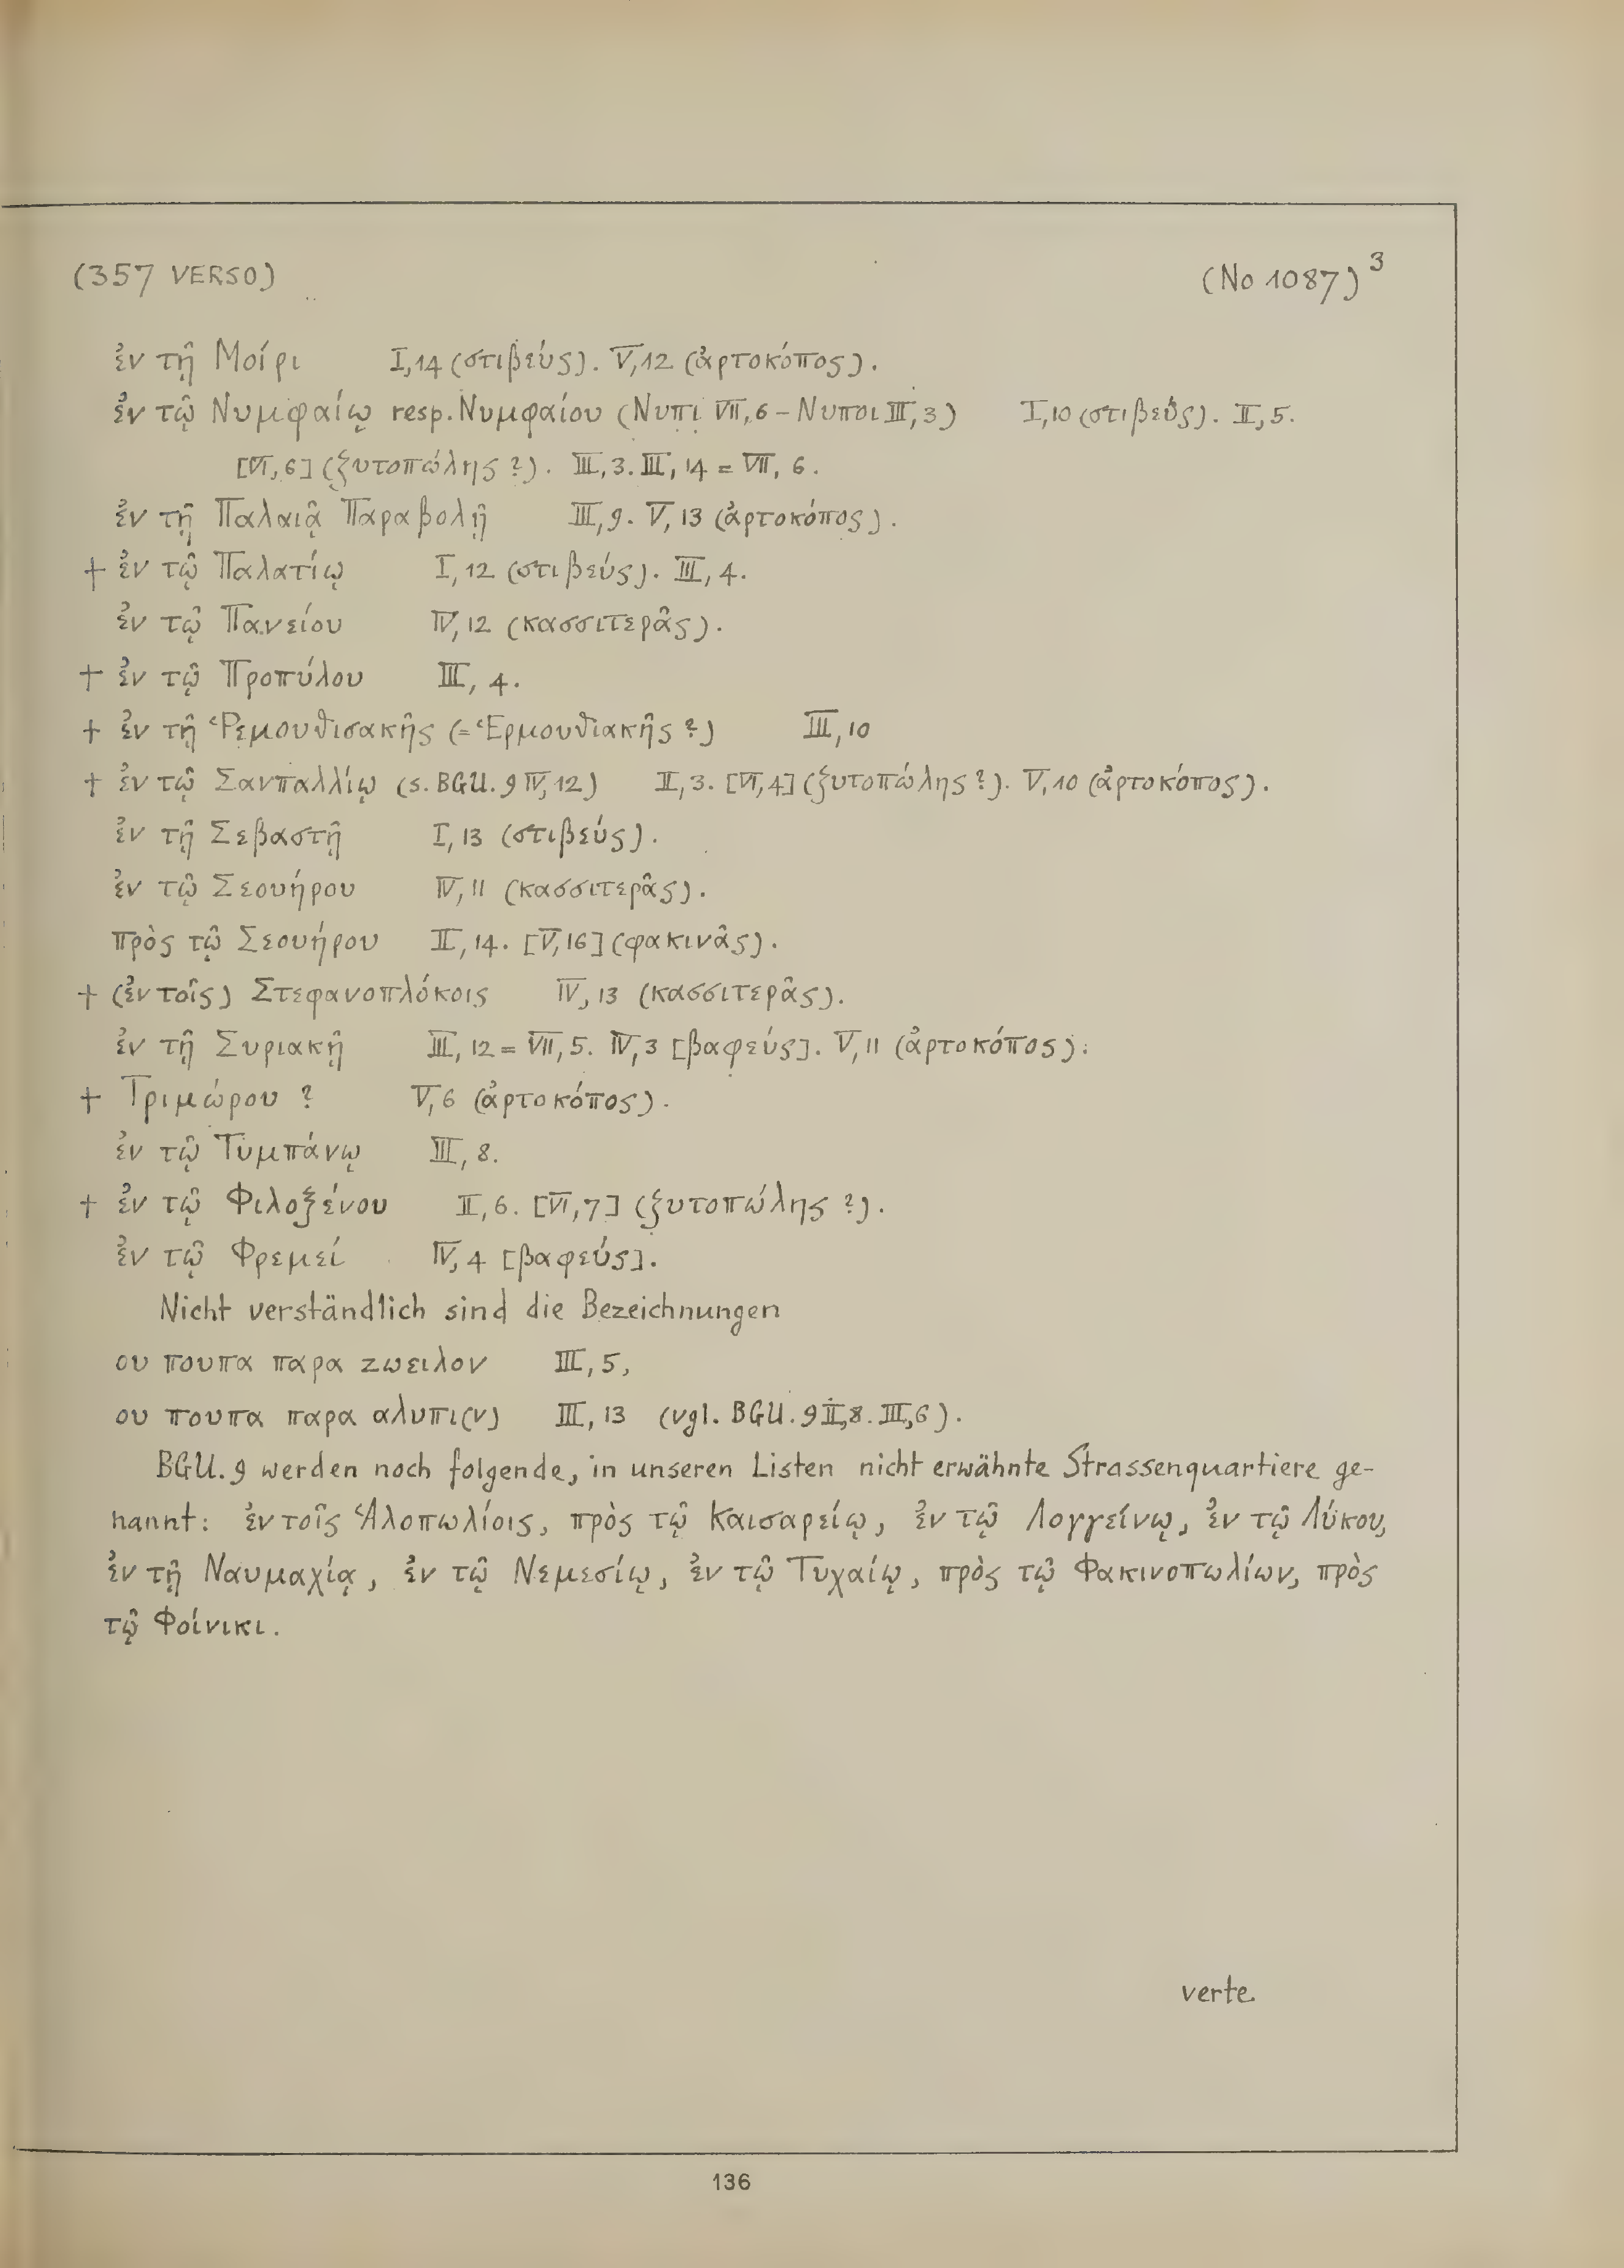 (357 VERSO) (No 1087)³
ἐν τῇ Μοίρι I,14 (στιβεύς). V,12 (ἀρτοκόπος).
ἐν τῷ Νυμφαίῳ resp. Νυμφαίου (Νυπι VII,6 – Νυποι III,3) I,10 (στιβεύς). II,5.
[VI,6] (ξυτοπώλης?). III,3. III,14 = VII, 6.
ἐν τῇ Παλαιᾷ Παραβολῇ III,9. V,13 (ἀρτοκόπος).
+ ἐν τῷ Παλατίῳ I,12 (στιβεύς). III,4.
ἐν τῷ Πανείου IV,12 (κασσιτερᾶς).
+ ἐν τῷ Προπύλου III, 4.
+ ἐν τῇ Ῥεμουθισακῆς (= Ἑρμουθιακῆς?) III,10
+ ἐν τῷ Σανπαλλίῳ (s. BGU. 9 IV,12) II,3. [VI,4] (ξυτοπώλης?). V,10 (ἀρτοκόπος).
ἐν τῇ Σεβαστῇ I,13 (στιβεύς).
ἐν τῷ Σεουήρου IV,11 (κασσιτερᾶς).
πρὸς τῷ Σεουήρου II,14. [V,16] (φακινᾶς).
+ (ἐν τοῖς) Στεφανοπλόκοις IV,13 (κασσιτερᾶς).
ἐν τῇ Συριακῇ III,12 = VII,5. IV,3 [βαφεύς]. V,11 (ἀρτοκόπος).
+ Τριμώρου? V,6 (ἀρτοκόπος).
ἐν τῷ Τυμπάνῳ III, 8.
+ ἐν τῷ Φιλοξένου II,6. [VI,7] (ξυτοπώλης?).
ἐν τῷ Φρεμεί IV,4 [βαφεύς].
Nicht verständlich sind die Bezeichnungen
ου πουπα παρα ζωειλον III,5,
ου πουπα παρα αλυπι(ν) III,13 (vgl. BGU. 9 II,8. III,6).
BGU. 9 werden noch folgende, in unseren Listen nicht erwähnte Strassenquartiere ge-
nannt: ἐν τοῖς Ἁλοπωλίοις, πρὸς τῷ Καισαρείῳ, ἐν τῷ Λογγείνῳ, ἐν τῷ Λύκου,
ἐν τῇ Ναυμαχίᾳ, ἐν τῷ Νεμεσίῳ, ἐν τῷ Τυχαίῳ, πρὸς τῷ Φακινοπωλίων, πρὸς
τῷ Φοίνικι.
verte.
136